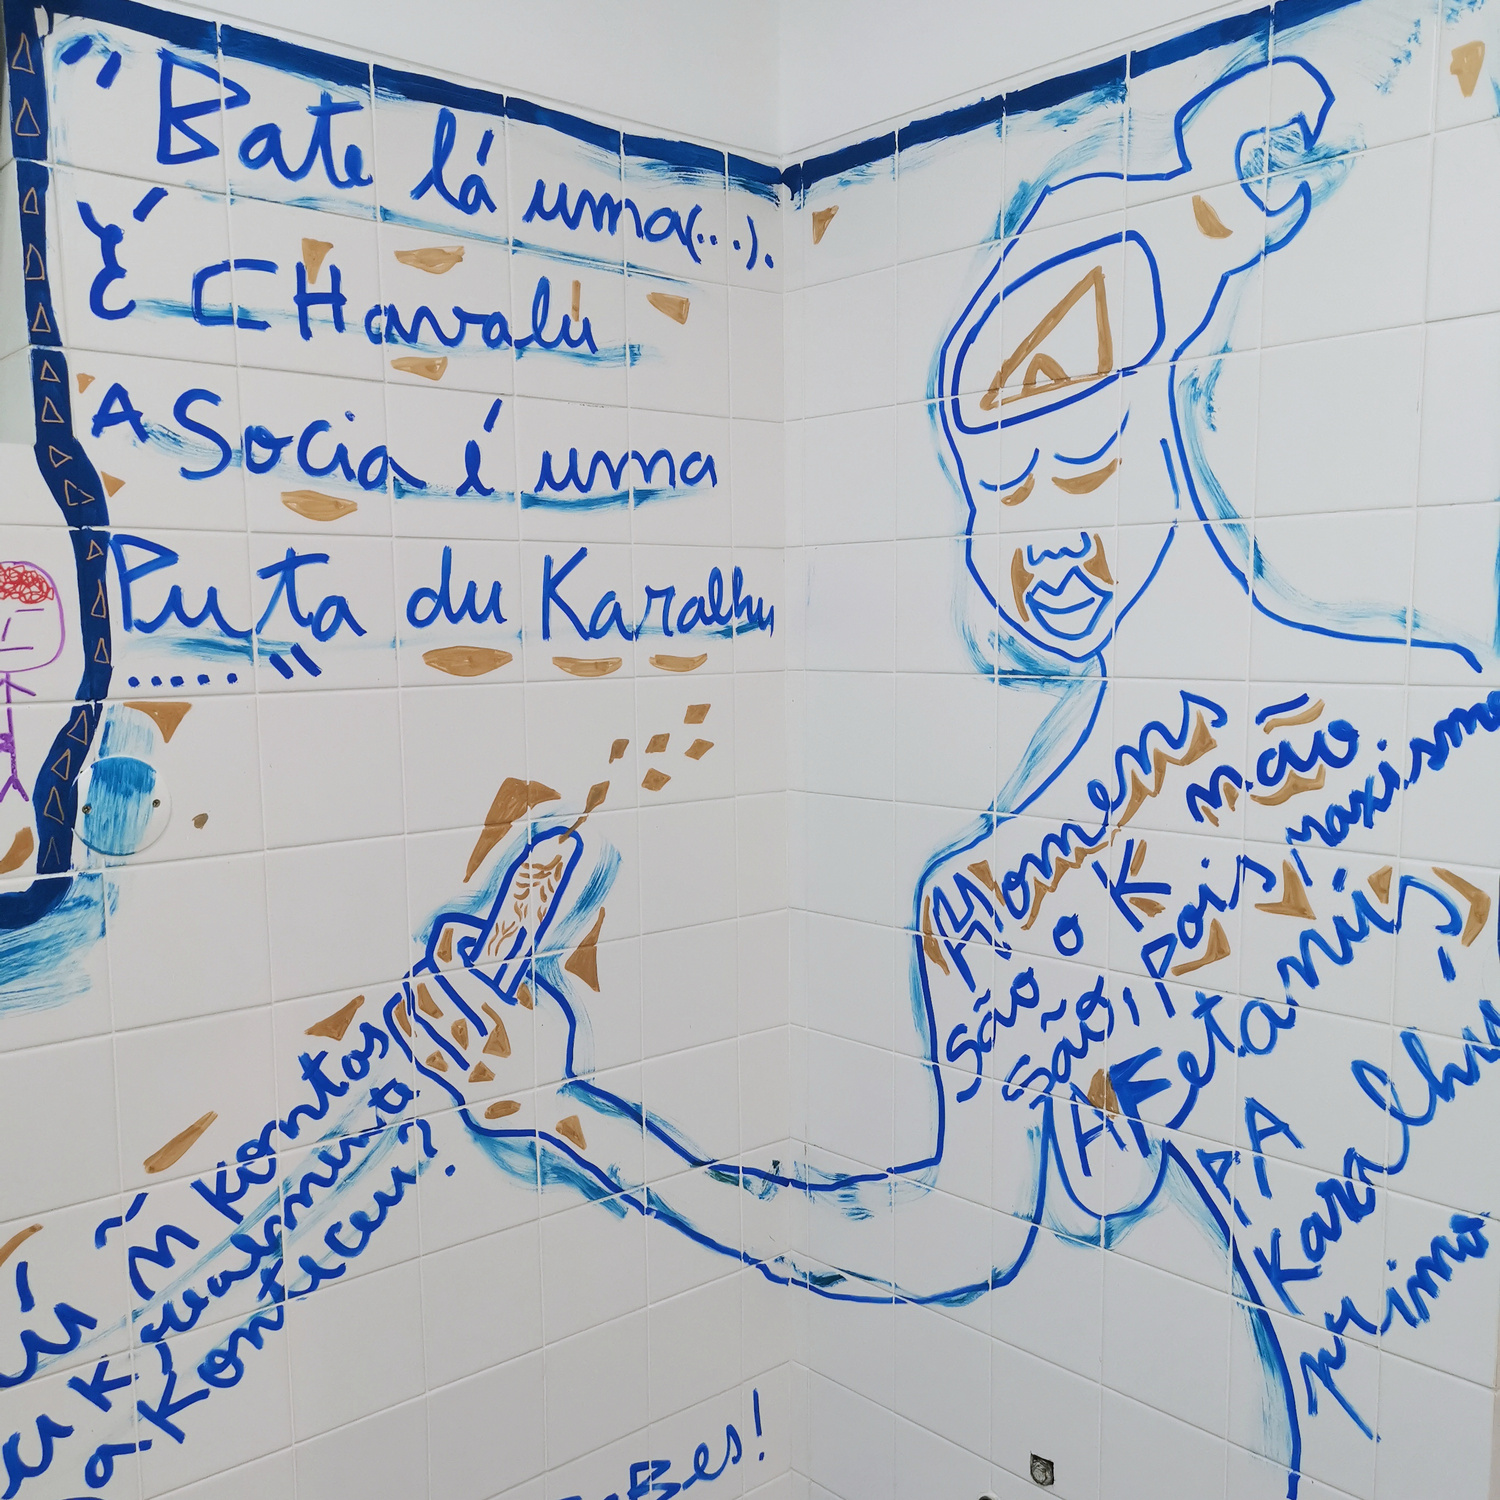 "Bate lá uma(...).
É CHavalu
A Socia é uma
Puta du Karalhu
....."
Homens
são o K não
são, Pois, maxismo
AFetanús,
A A
Karalhu
primo
ú ñ kontos
u K realmente
a Konteceu?
Bes!